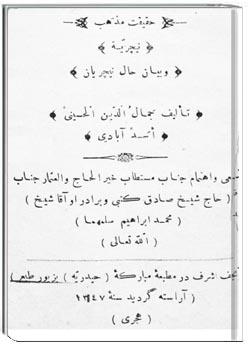 حقیقت مذهب
﴿ نیچریّة ﴾
﴿ وبیان حال نیچریان ﴾
﴿ تألیف جمال الدین الحسینی ﴾
﴿ أسد آبادی ﴾
سعی واهتمام جناب مستطاب خیر الحاج والعمار جناب
( حاج شیخ صادق کتبی وبرادر او آقا شیخ )
( محمد ابراهیم سلمهما )
( الله تعالی )
نجف اشرف در مطبعهٔ مبارکهٔ ( حیدریّه ) بزیور طبع
( آراسته گردید سنهٔ ١٣٤٧ )
( هجری )